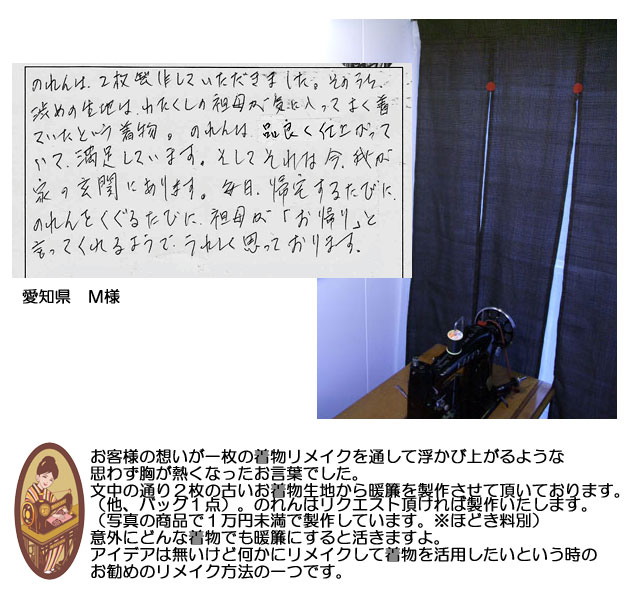 のれんは、2枚製作していただきました。そのうち、
渋めの生地は、わたくしの祖母が気に入ってよく着
ていたという着物。のれんは、品良く仕上がって
いて、満足しています。そしてそれは今、我が
家の玄関にあります。毎日、帰宅するたびに、
のれんをくぐるたびに、祖母が「お帰り」と
言ってくれるようで、うれしく思っております。
愛知県　M様
お客様の想いが一枚の着物リメイクを通して浮かび上がるような
思わず胸が熱くなったお言葉でした。
文中の通り２枚の古いお着物生地から暖簾を製作させて頂いております。
（他、バッグ１点）。のれんはリクエスト頂ければ製作いたします。
（写真の商品で１万円未満で製作しています。※ほどき料別）
意外にどんな着物でも暖簾にすると活きますよ。
アイデアは無いけど何かにリメイクして着物を活用したいという時の
お勧めのリメイク方法の一つです。